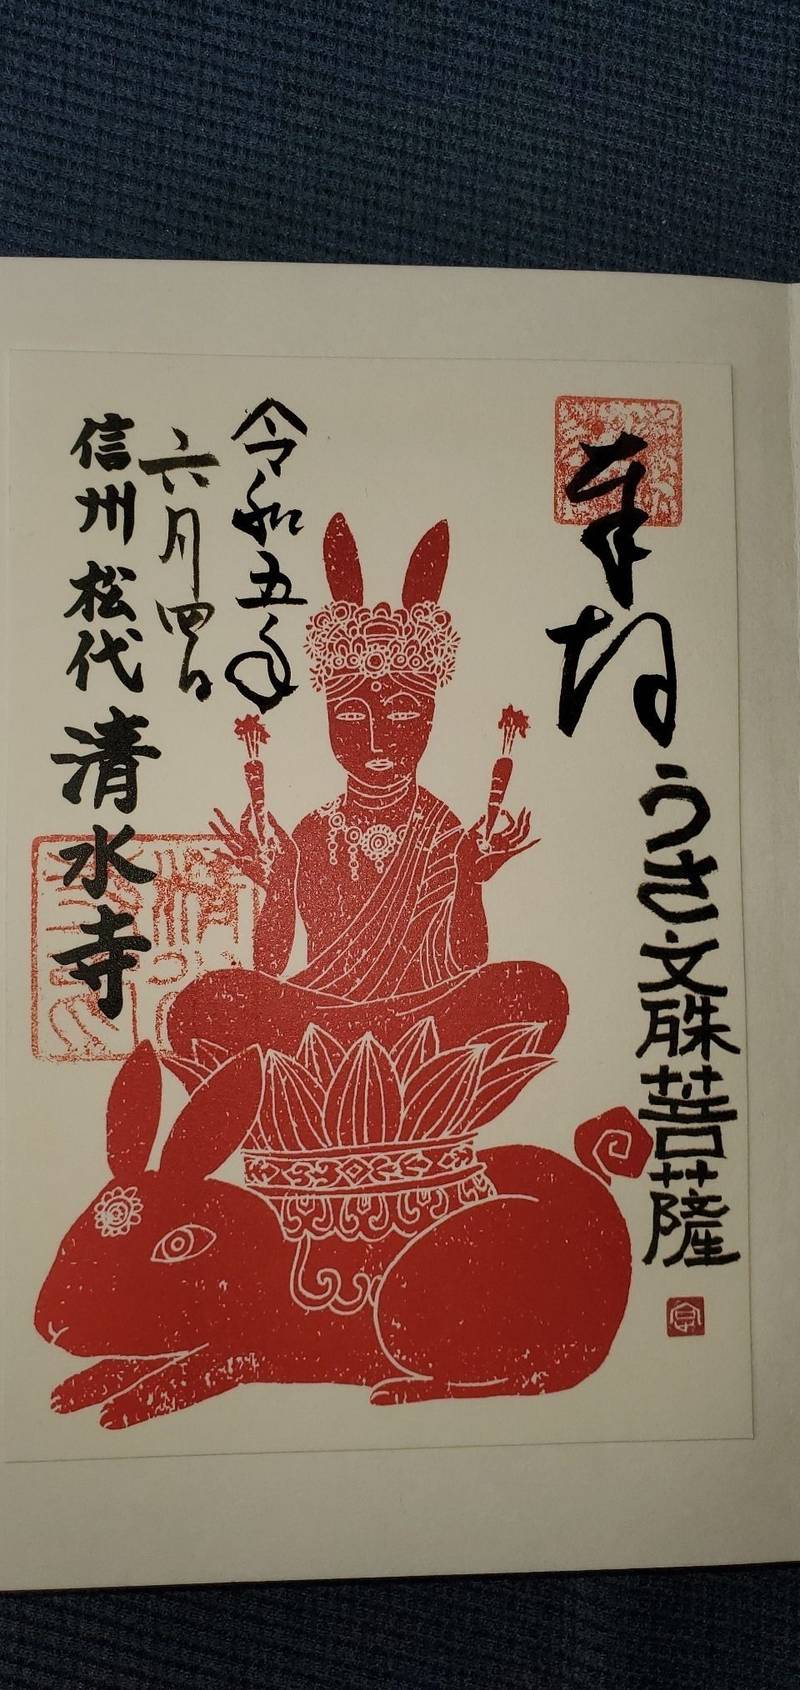 奉拝
うさ文殊菩薩
令和五年
六月四日
信州松代清水寺